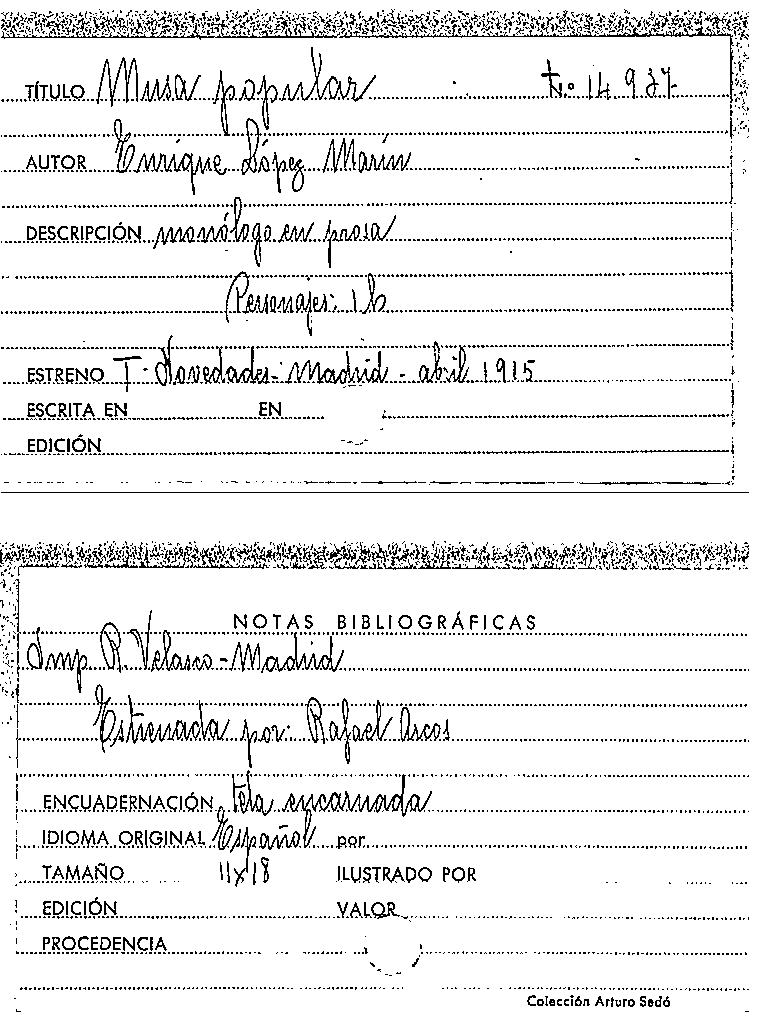 TÍTULO Musa popular t.º 14.937
AUTOR Enrique López Marín
DESCRIPCIÓN monólogo en prosa
Personajes: 1 h
ESTRENO T. Novedades - Madrid - abril 1915
ESCRITA EN EN
EDICIÓN
NOTAS BIBLIOGRÁFICAS
Imp. R. Velasco - Madrid
Estrenada por: Rafael Arcos
ENCUADERNACIÓN tela encarnada
IDIOMA ORIGINAL Español por
TAMAÑO 11x18 ILUSTRADO POR
EDICIÓN VALOR
PROCEDENCIA
Colección Arturo Sedó